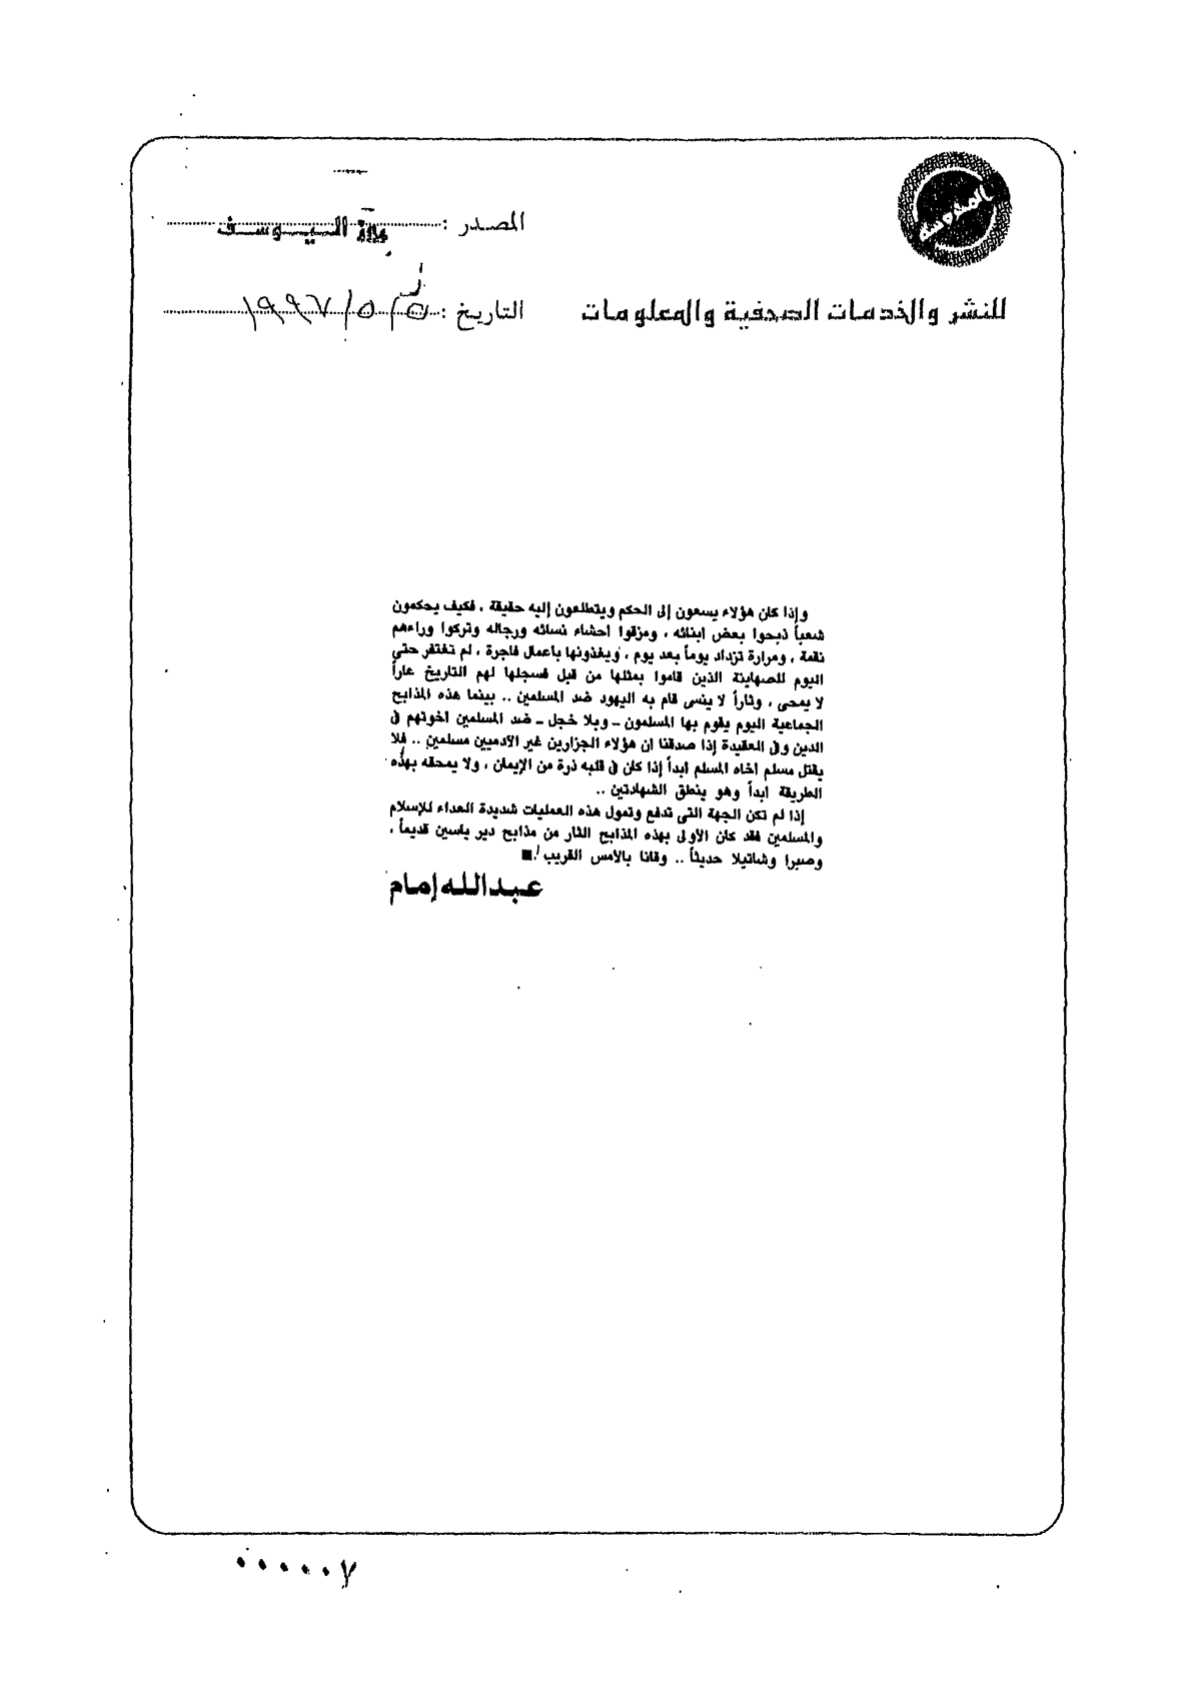 المصدر : روزاليوسف
للنشر والخدمات الصحفية والمعلومات
التاريخ : ٥/٥/١٩٩٧
وإذا كان هؤلاء يسعون إلى الحكم ويتطلعون إليه حقيقة ، فكيف يحكمون
شعباً ذبحوا بعض ابنائه ، ومزقوا احشاء نسائه ورجاله وتركوا وراءهم
نقمة ، ومرارة تزداد يوماً بعد يوم ، ويغذونها باعمال فاجرة ، لم تغتفر حتى
اليوم للصهاينة الذين قاموا بمثلها من قبل فسجلها لهم التاريخ عاراً
لا يمحى ، وثاراً لا ينسى قام به اليهود ضد المسلمين .. بينما هذه المذابح
الجماعية اليوم يقوم بها المسلمون ـ وبلا خجل ـ ضد المسلمين اخوتهم فى
الدين وفى العقيدة إذا صدقنا ان هؤلاء الجزارين غير الآدميين مسلمين .. فلا
يقتل مسلم اخاه المسلم ابداً إذا كان فى قلبه ذرة من الإيمان ، ولا يمحقه بهذه
الطريقة ابداً وهو ينطق الشهادتين ..
إذا لم تكن الجهة التى تدفع وتمول هذه العمليات شديدة العداء للإسلام
والمسلمين فقد كان الأولى بهذه المذابح الثار من مذابح دير ياسين قديماً ،
وصبرا وشاتيلا حديثاً .. وقانا بالامس القريب !.■
عبدالله إمام
٠٠٠٠٠٧